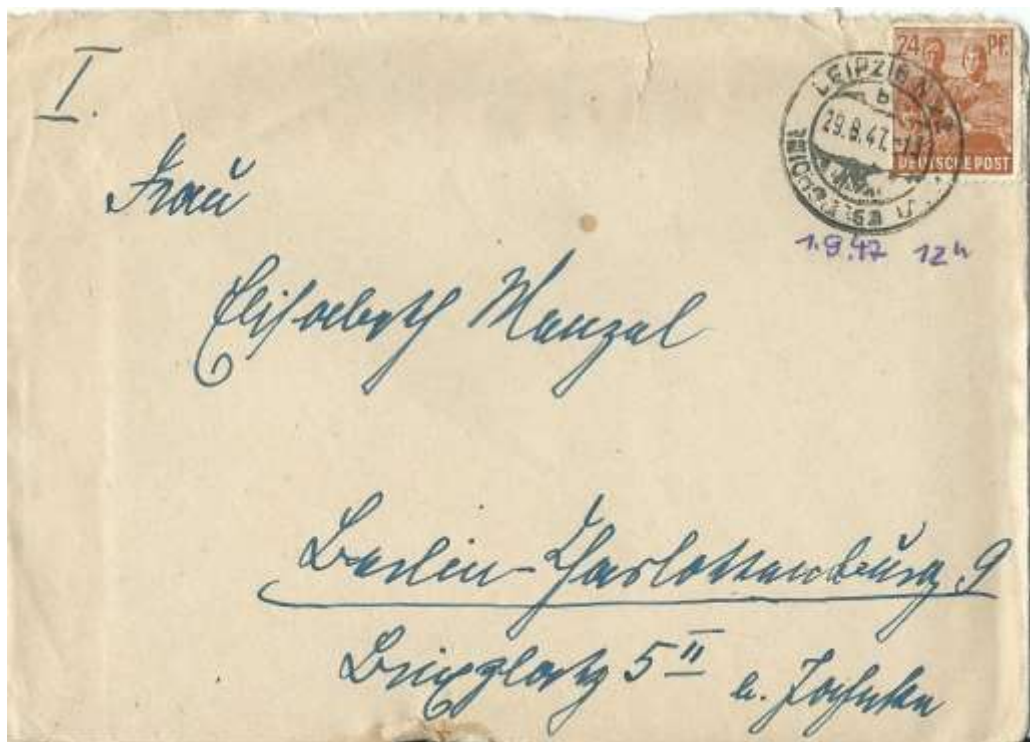 I.
24 Pf.
DEUTSCHE POST
LEIPZIG
29.8.47.
1.9.47 12h
Frau
Elisabeth Manzel
Berlin-Charlottenburg 9
Brixplatz 5 II
b. Jahnke